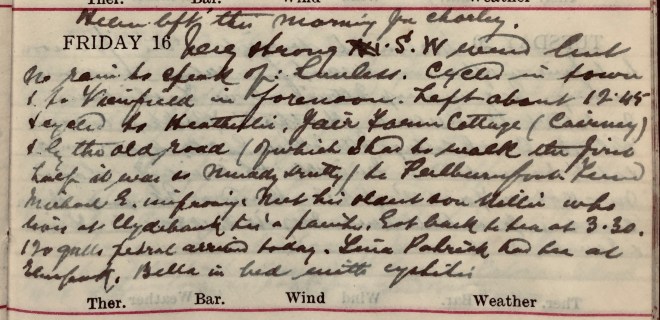 Ther. Bar. Wind Weather
Helen left this morning for Chorley.
FRIDAY 16 Very strong S.W wind but
no rain to speak of. Sunless. Cycled in town
& to Viewfield in forenoon. Left about 12.45
& cycled to Heatherlie, Fair Cottage (Cairney)
& by the old road (of which I had to walk the first
half it was so muddy & rutty) to Peelburnfoot. Found
Michael E. improving. Met his oldest son Willie who
lives at Clydebank & is a painter. Got back to tea at 3.30.
120 galls petrol arrived today. Lena Patrick had tea at
Elmpark. Bella in bed with
Ther. Bar. Wind Weather